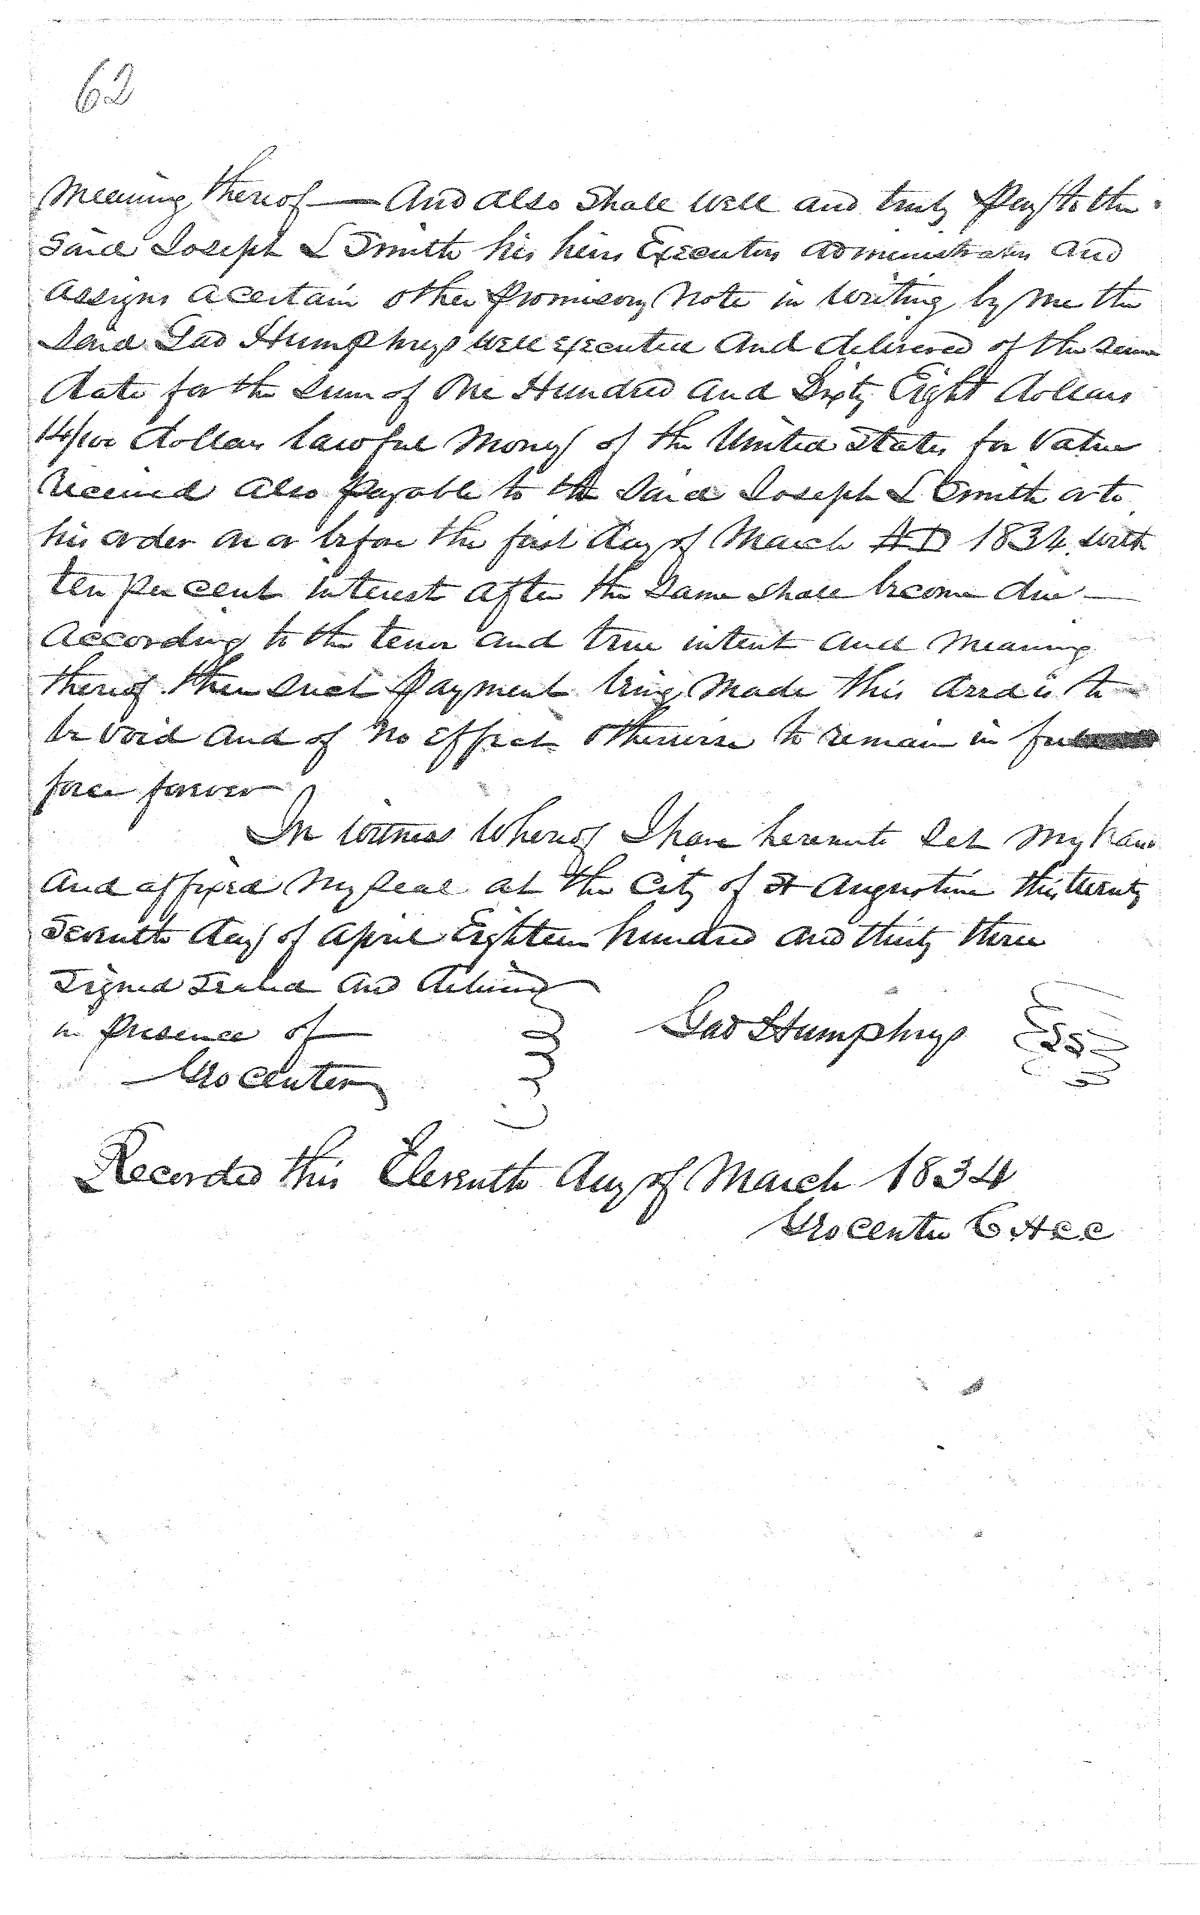 62
Meaning thereof — And also Shall Well and truly Pay to the
Said Joseph L Smith his heirs Executors administrators And
Assigns a certain other promisory Note in writing by me the
Said Gad Humphreys well executed And delivered of the same
date for the sum of One Hundred and Sixty Eight dollars
14/100 dollars lawful Money of the United States for Value
received also payable to the Said Joseph L Smith or to
his order on or before the first day of March AD 1834 with
ten per cent interest after the same shall become due —
According to the tenor and true intent and meaning
thereof then such payment being made this deed is to
be void and of no effect otherwise to remain in full
force forever
In witness whereof I have hereunto set my hand
And affixed my seal at the City of St Augustine this twenty
Seventh day of April Eighteen hundred and thirty three
Signed Sealed and delivered
in presence of
Gad Humphreys
Geo Center
Recorded this Eleventh day of March 1834
Geo Center